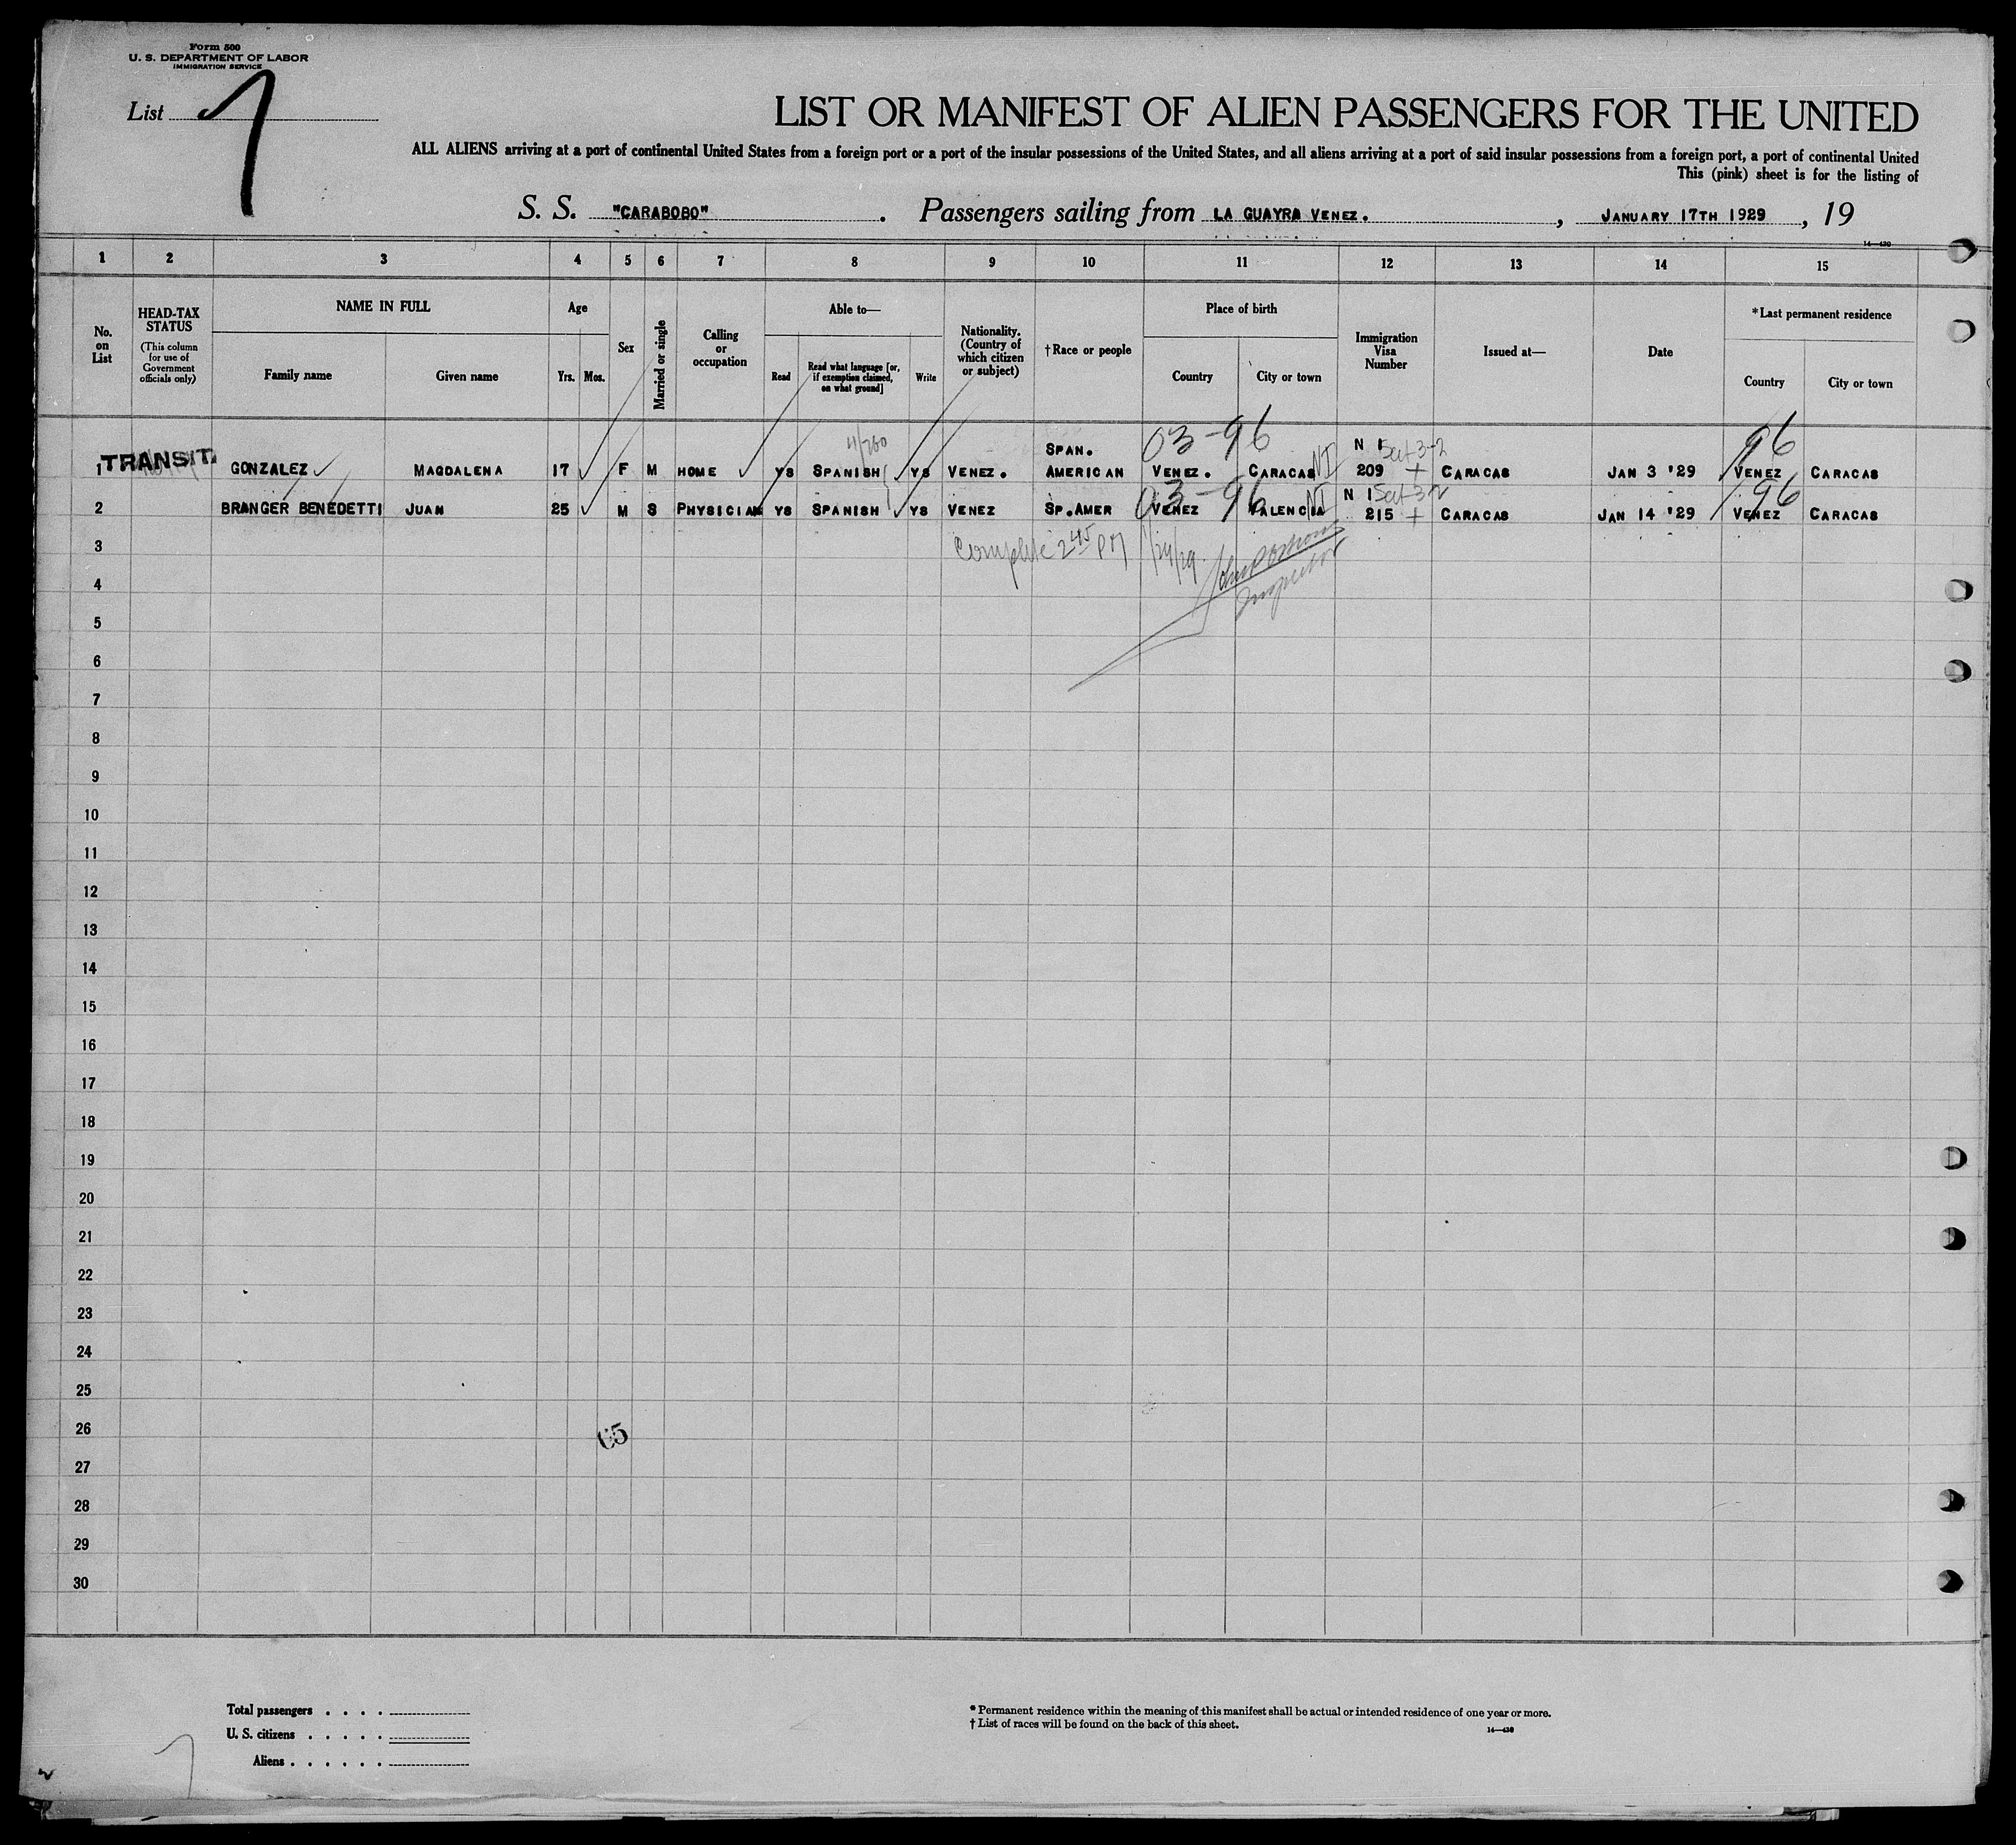 Form 500
U. S. DEPARTMENT OF LABOR
IMMIGRATION SERVICE
List 7
LIST OR MANIFEST OF ALIEN PASSENGERS FOR THE UNITED
ALL ALIENS arriving at a port of continental United States from a foreign port or a port of the insular possessions of the United States, and all aliens arriving at a port of said insular possessions from a foreign port, a port of continental United
This (pink) sheet is for the listing of
S. S. "CARABOBO". Passengers sailing from LA GUAYRA VENEZ., JANUARY 17TH 1929, 19
14—430
1 2 3 4 5 6 7 8 9 10 11 12 13 14 15
No. on List
HEAD-TAX STATUS
(This column for use of Government officials only)
NAME IN FULL
Family name
Given name
Age
Yrs. Mos.
Sex
Married or single
Calling or occupation
Able to—
Read
Read what language [or, if exemption claimed, on what ground]
Write
Nationality. (Country of which citizen or subject)
†Race or people
Place of birth
Country
City or town
Immigration Visa Number
Issued at—
Date
*Last permanent residence
Country
City or town
4/260 SPAN. 03-96 N 1 96
1 TRANSIT. GONZALEZ MAGDALENA 17 F M HOME YS SPANISH YS VENEZ. AMERICAN VENEZ. CARACAS NI 209 + CARACAS JAN 3 '29 VENEZ CARACAS
03-96 N 1 96
2 BRANGER BENEDETTI JUAN 25 M S PHYSICIAN YS SPANISH YS VENEZ SP.AMER VENEZ VALENCIA NI 215 + CARACAS JAN 14 '29 VENEZ CARACAS
3 Complete 2 45 PM 1/24/29
Inspector
4
5
6
7
8
9
10
11
12
13
14
15
16
17
18
19
20
21
22
23
24
25
26
65
27
28
29
30
Total passengers . . . .
U. S. citizens . . . . .
Aliens . . . . . .
* Permanent residence within the meaning of this manifest shall be actual or intended residence of one year or more.
† List of races will be found on the back of this sheet.
14—430